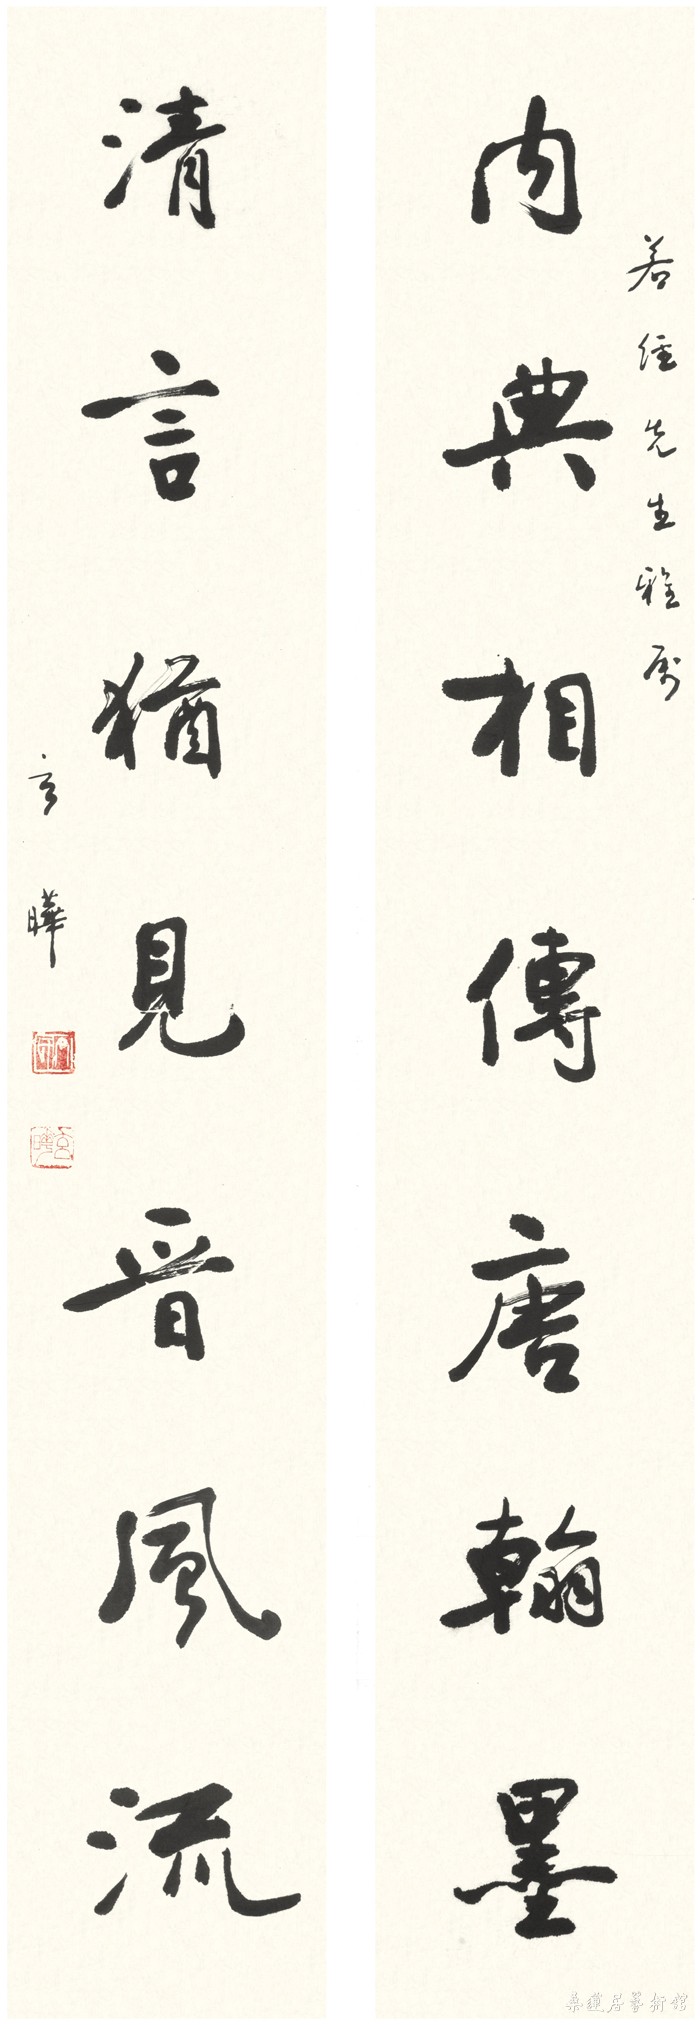 若經先生雅屬
內典相傳唐翰墨
清言猶見晉風流
玄曄
桑蓮居藝術館